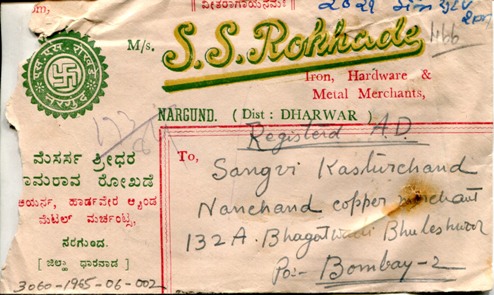 ವೀತರಾಗಾಯನಮಃ
M/s. S. S. Rokhade
1166
Iron, Hardware &
Metal Merchants,
NARGUND. (Dist: DHARWAR)
Registerd A.D
ಮೆಸರ್ಸ ಶ್ರೀಧರ
ರಾಮರಾವ ರೋಖಡೆ
ಆಯರ್ನ, ಹಾರ್ಡವೇರ ಆ್ಯಂಡ
ಮೆಟಲ್ ಮರ್ಚಂಟ್ಸ,
ನರಗುಂದ.
[ ಜಿಲ್ಹಾ ಧಾರವಾಡ ]
3060-1965-06-002
To,
Sangvi Kasturchand
Nanchand copper merchant
132 A. Bhagatwadi Bhuleshwor
Po:- Bombay-2